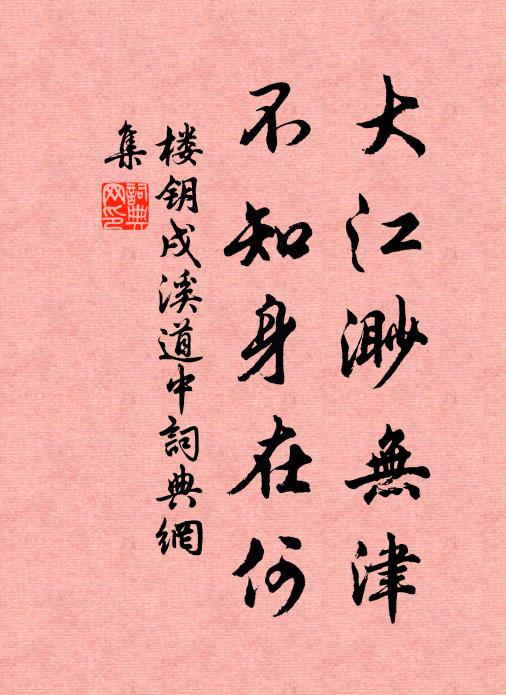 大江渺無津
不知身在何
楼钥戍溪道中詞典網
集
詞典
网印